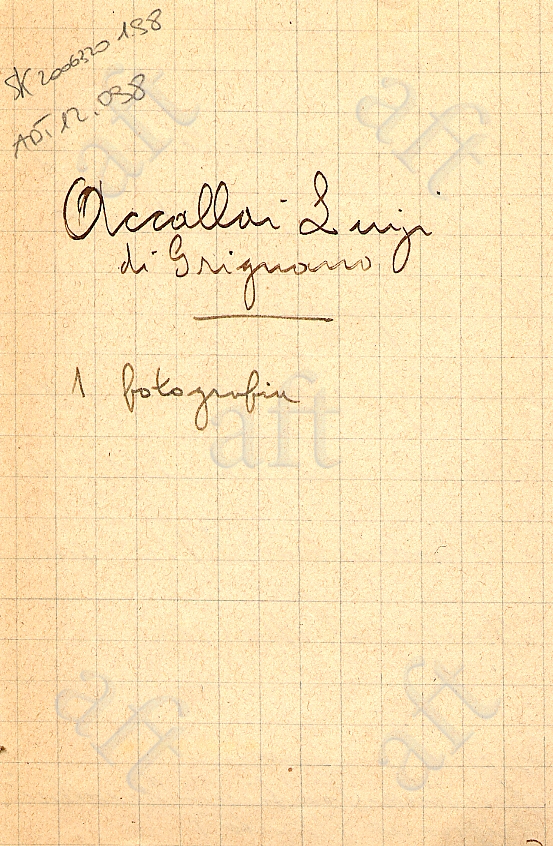 SK 2006320 198
ADT 12.038
Accallai Luigi
di Grignano
1 fotografia
aft
aft
aft
aft
aft